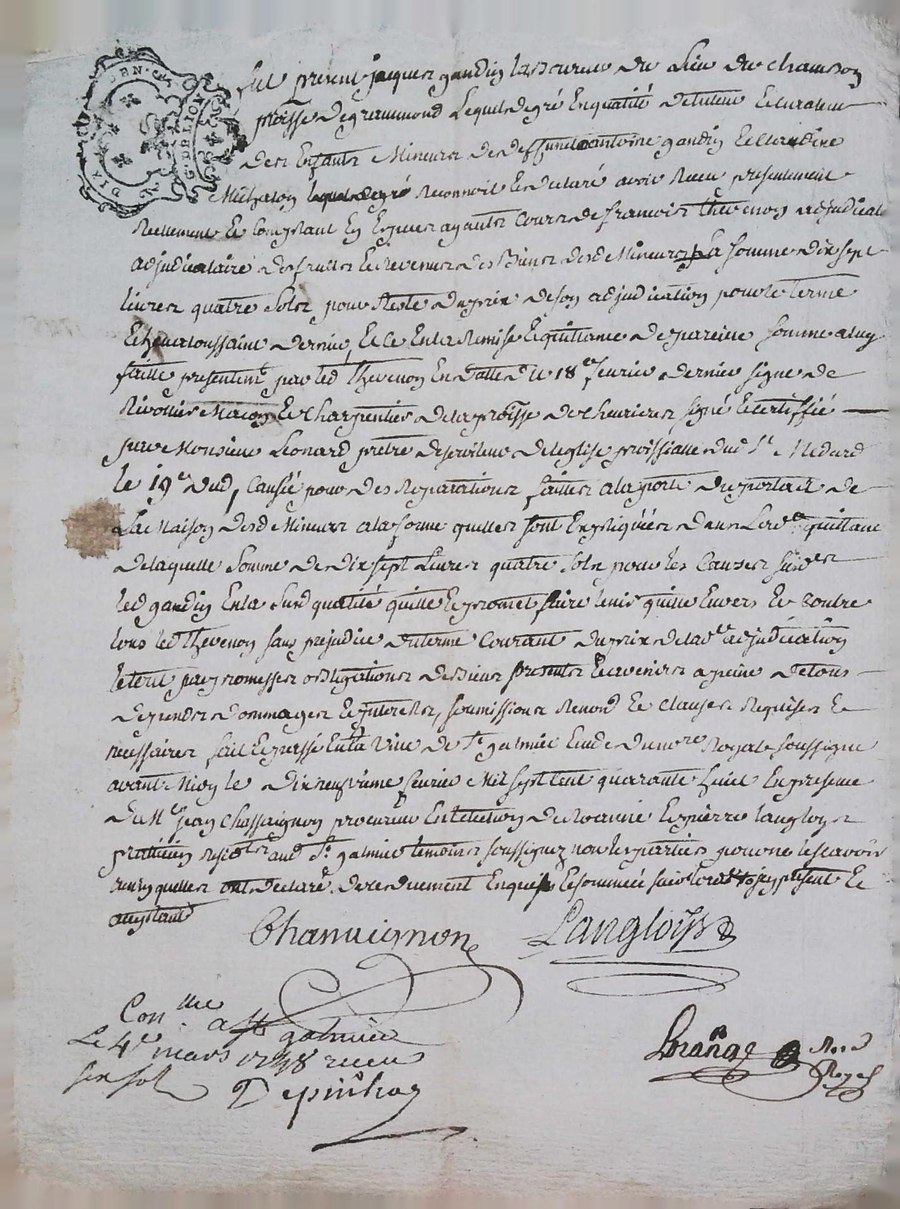 DIX DEN. G. DE LION
fut present jacques gaudin laboureur du Lieu de chamson
proisse de grammond Lequel de gré En qualité de tuteur Et curateur
des Enfants Mineurs de deffunct antoine gaudin Et claudine
Michalon lequel de gré reconnoit Et declaré avoir Receu presentement
Reellement Et Comptant En Especes ayants Cours de francois thevenon adjudicat
adjudicataire des fruits Et Revenus des Biens desd Mineurs La somme dix sept
livres quatre sols pour Reste du prix de son adjudication pour le terme
Echeu a toussaint dernier, Et ce En la Remise Et quittance de pareille somme a luy
faitte presentemt par led thevenon En datte du 18e fevrier dernier signé de
Maçon Et Charpentier de la proisse de chevrieres signé Et certiffié
par Monsieur Leonard prêtre desserviteur de l'eglise proissialle dud St Medard
le 19e dud, Causée pour des Reparations faittes a la porte du portail de
La Maison desd Mineurs a la forme quelles sont Expliquées dans Lad quittance
de laquelle somme de dix sept Livres quatre sols pour les Causes susd
led gaudin En la susd qualité quitte Et promet faire tenir quitte Envers Et Contre
tous led thevenon sans prejudice du terme Courant du prix de lad adjudication
le tout par promesses obligations de Biens presents Et avenirs a peine de tous
depends dommages Et interests, soumissions Renonc Et clauses Requises Et
necessaires fait Et passé En la Ville de St galmier Etude du nore Royal soussigné
avant Midy le dix neufvieme fevrier Mil sept Cent quarante huict En presence
de Me jean Chassaignon procureur En l'election de Roanne Et pierre langlois
praticien audt St galmier temoins soussignez non les parties pour ne le scavoir
ont declaré de ce duement Enquis Et sommée present Et
acceptant
Chassaignon
Langlois
Conlle a St galmier
Le 4e mars 1748 receu
six sols
Depinhac
nore
Royal